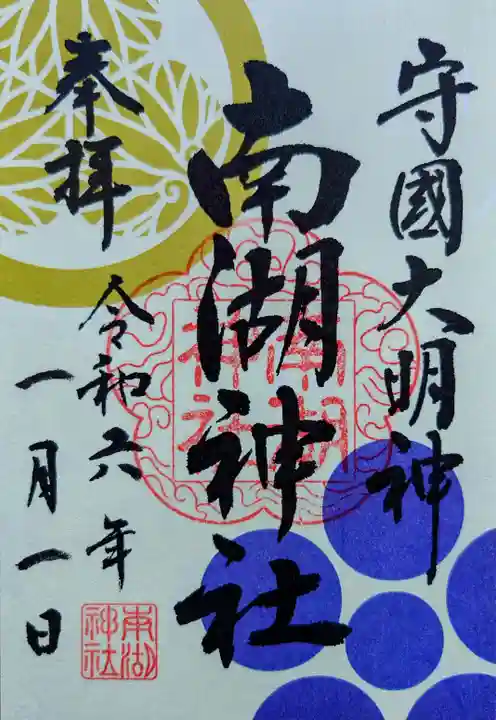 守國大明神
南湖神社
奉拝
令和六年
一月一日
南湖
神社
南湖
神社